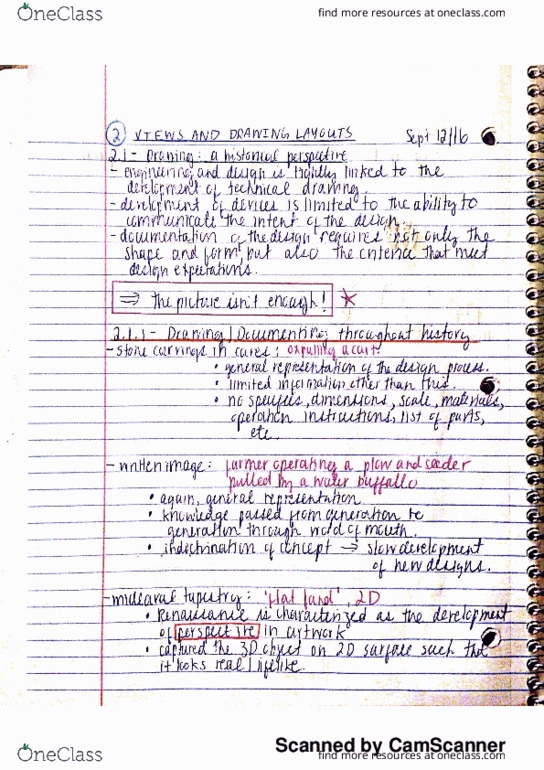 OneClass
find more resources at oneclass.com
2 VIEWS AND DRAWING LAYOUTS Sept 12/16
2.1 - Drawing: a historical perspective
- engineering and design is tightly linked to the
development of technical drawing.
- development of devices is limited to the ability to
communicate the intent of the design.
- documentation of the design requires not only the
shape and form but also the criteria that meet
design expectations.
⇒ The picture isn't enough! *
2.1.1 - Drawing/Documenting throughout history
- stone carvings in caves: ox pulling a cart.
• general representation of the design process.
• limited information other than this.
• no specifics, dimensions, scale, materials,
operation instructions, list of parts,
etc.
- written image: farmer operating a plow and seeder
pulled by a water buffallo
• again, general representation
• knowledge passed from generation to
generation through word of mouth.
• of concept → slow development
of new designs.
- tapestry: 'flat land', 2D
• Renaissance is characterized as the development
of perspective in artwork
• captured the 3D object on 2D surface such that
it looks real/lifelike.
Scanned by CamScanner
OneClass
find more resources at oneclass.com